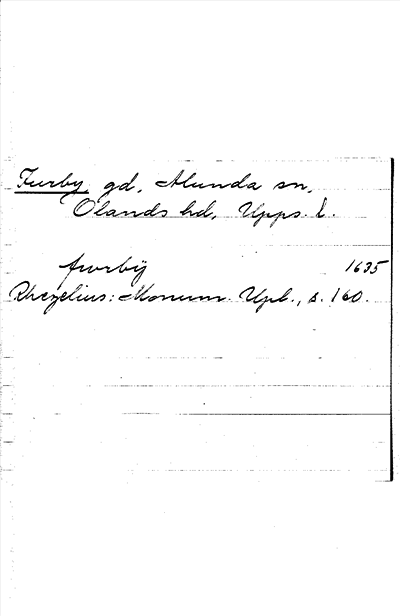 Furby, gd, Alunda sn,
Olands hd, Upps. l.
furbÿ 1635
Rhezelius: Monum. Upl., s. 160.